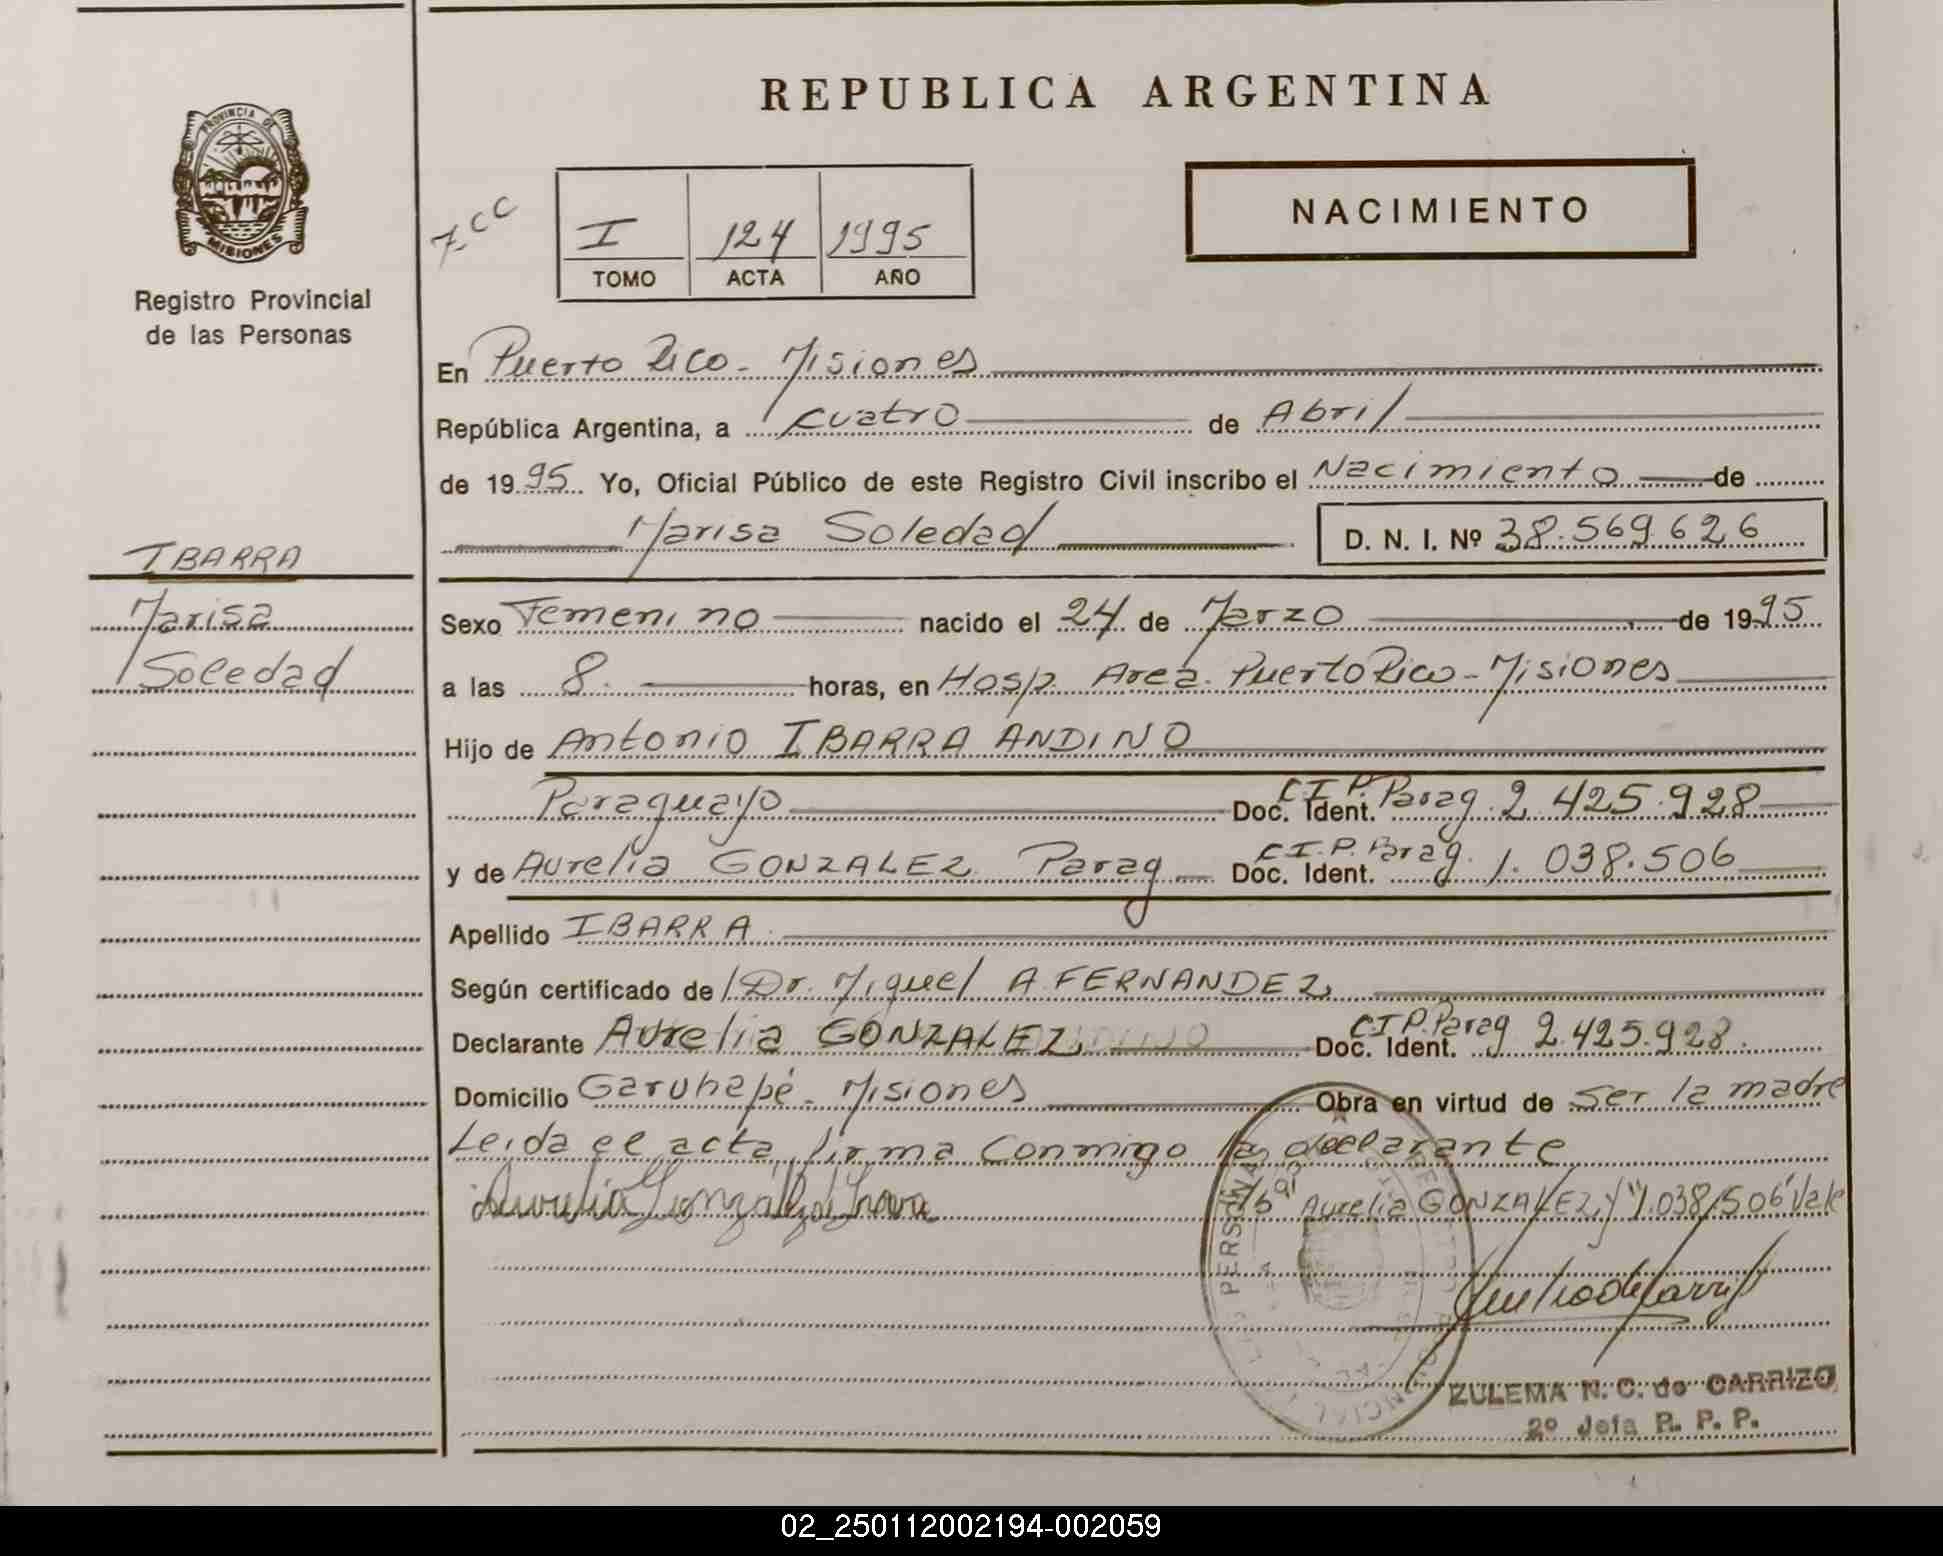 REPUBLICA ARGENTINA
PROVINCIA DE
MISIONES
Registro Provincial
de las Personas
I 124 1995
TOMO ACTA AÑO
NACIMIENTO
En Puerto Rico - Misiones
República Argentina, a cuatro de Abril
de 1995 Yo, Oficial Público de este Registro Civil inscribo el Nacimiento de
Marisa Soledad D. N. I. Nº 38.569.626
IBARRA
Marisa
Soledad
Sexo Femenino nacido el 24 de Marzo de 1995
a las 8. horas, en Hosp. Area. Puerto Rico - Misiones
Hijo de Antonio IBARRA ANDINO
Paraguayo Doc. Ident. C.I.P. Parag. 2.425.928
y de Aurelia GONZALEZ Parag Doc. Ident. C.I.P. Parag. 1.038.506
Apellido IBARRA
Según certificado de Dr. Miguel A. FERNANDEZ
Declarante Aurelia GONZALEZ Doc. Ident. C.I.P. Parag 2.425.928.
Domicilio Garuhapé - Misiones Obra en virtud de ser la madre
Leida el acta, firma conmigo la declarante
Aurelia González de
Aurelia GONZALEZ y "1.038.506" Vale
ZULEMA N. C. de CARRIZO
2º Jefa R. P. P.
02_250112002194-002059